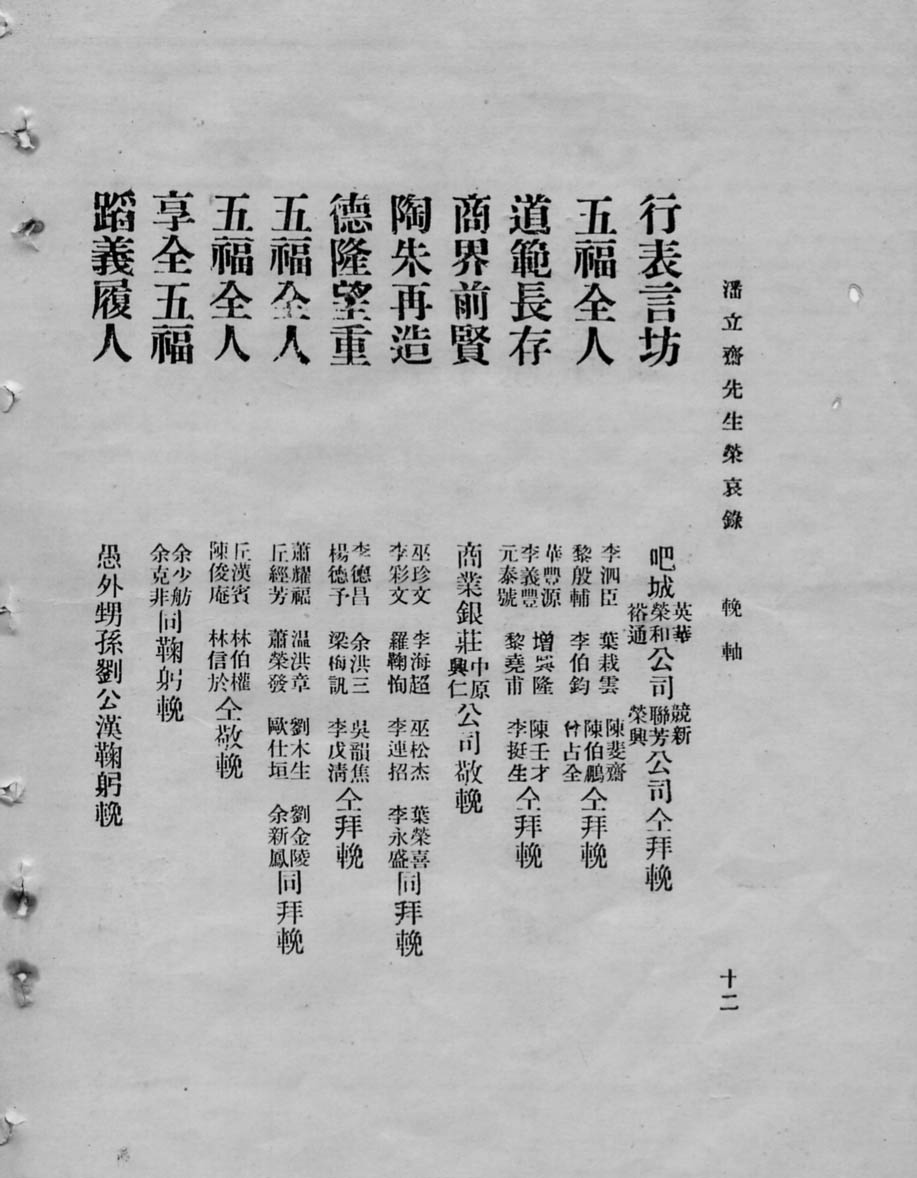 潘立齋先生榮哀錄 輓軸 十二
行表言坊 吧城英華榮和裕通公司競新聯芳榮興公司仝拜輓
五福全人 李泗臣 葉栽雲 陳斐齋 黎殷輔 李伯鈞 陳伯鵬 占全仝拜輓
道範長存 華豐源 李義豐 元泰號 增興隆 黎堯甫 陳壬才 李挺生仝拜輓
商界前賢 商業銀莊中原興仁公司敬輓
陶朱再造 巫珍文 李海超 巫松杰 葉榮喜 李彩文 羅鞠恂 李連招 李永盛同拜輓
德隆望重 李德昌 余洪三 吳韻焦 楊德予 梁梅訊 李戊清仝拜輓
五福全人 蕭耀福 温洪章 劉木生 劉金陵 丘經芳 蕭榮發 歐仕垣 余新鳳同拜輓
五福全人 丘漢賓 林伯權 陳俊庵 林信於仝敬輓
享全五福 余少舫 余克非同鞠躬輓
蹈義履人 愚外甥孫劉公漢鞠躬輓